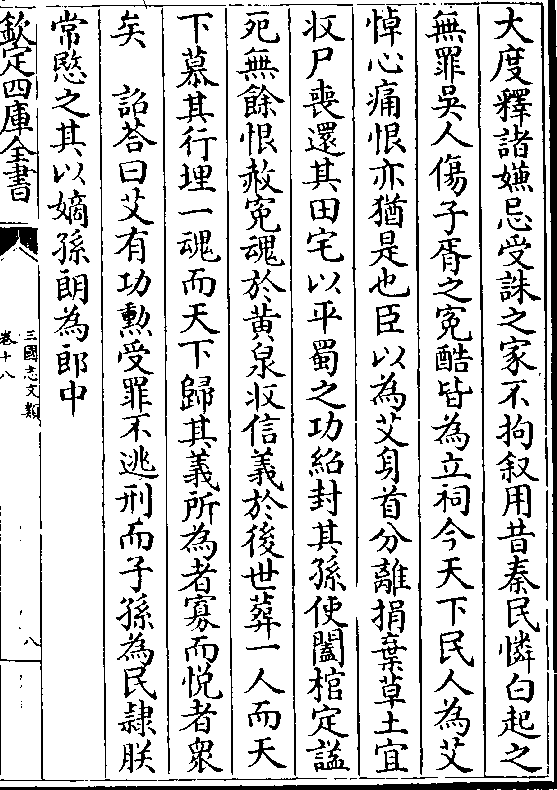 大度釋諸嫌忌受誅之家不拘叙用昔秦民憐白起之
無罪吳人傷子胥之冤酷皆為立祠今天下民人為艾
悼心痛恨亦猶是也臣以為艾身首分離捐棄草土宜
収尸喪還其田宅以平蜀之功紹封其孫使闔棺定諡
死無餘恨赦冤魂於黄泉収信義於後世葬一人而天
下慕其行埋一魂而天下歸其義所為者寡而悦者衆
矣　詔荅曰艾有功勲受罪不逃刑而子孫為民隷朕
常愍之其以嫡孫朗為郎中
欽定四庫全書
三國志文類
卷十八
八